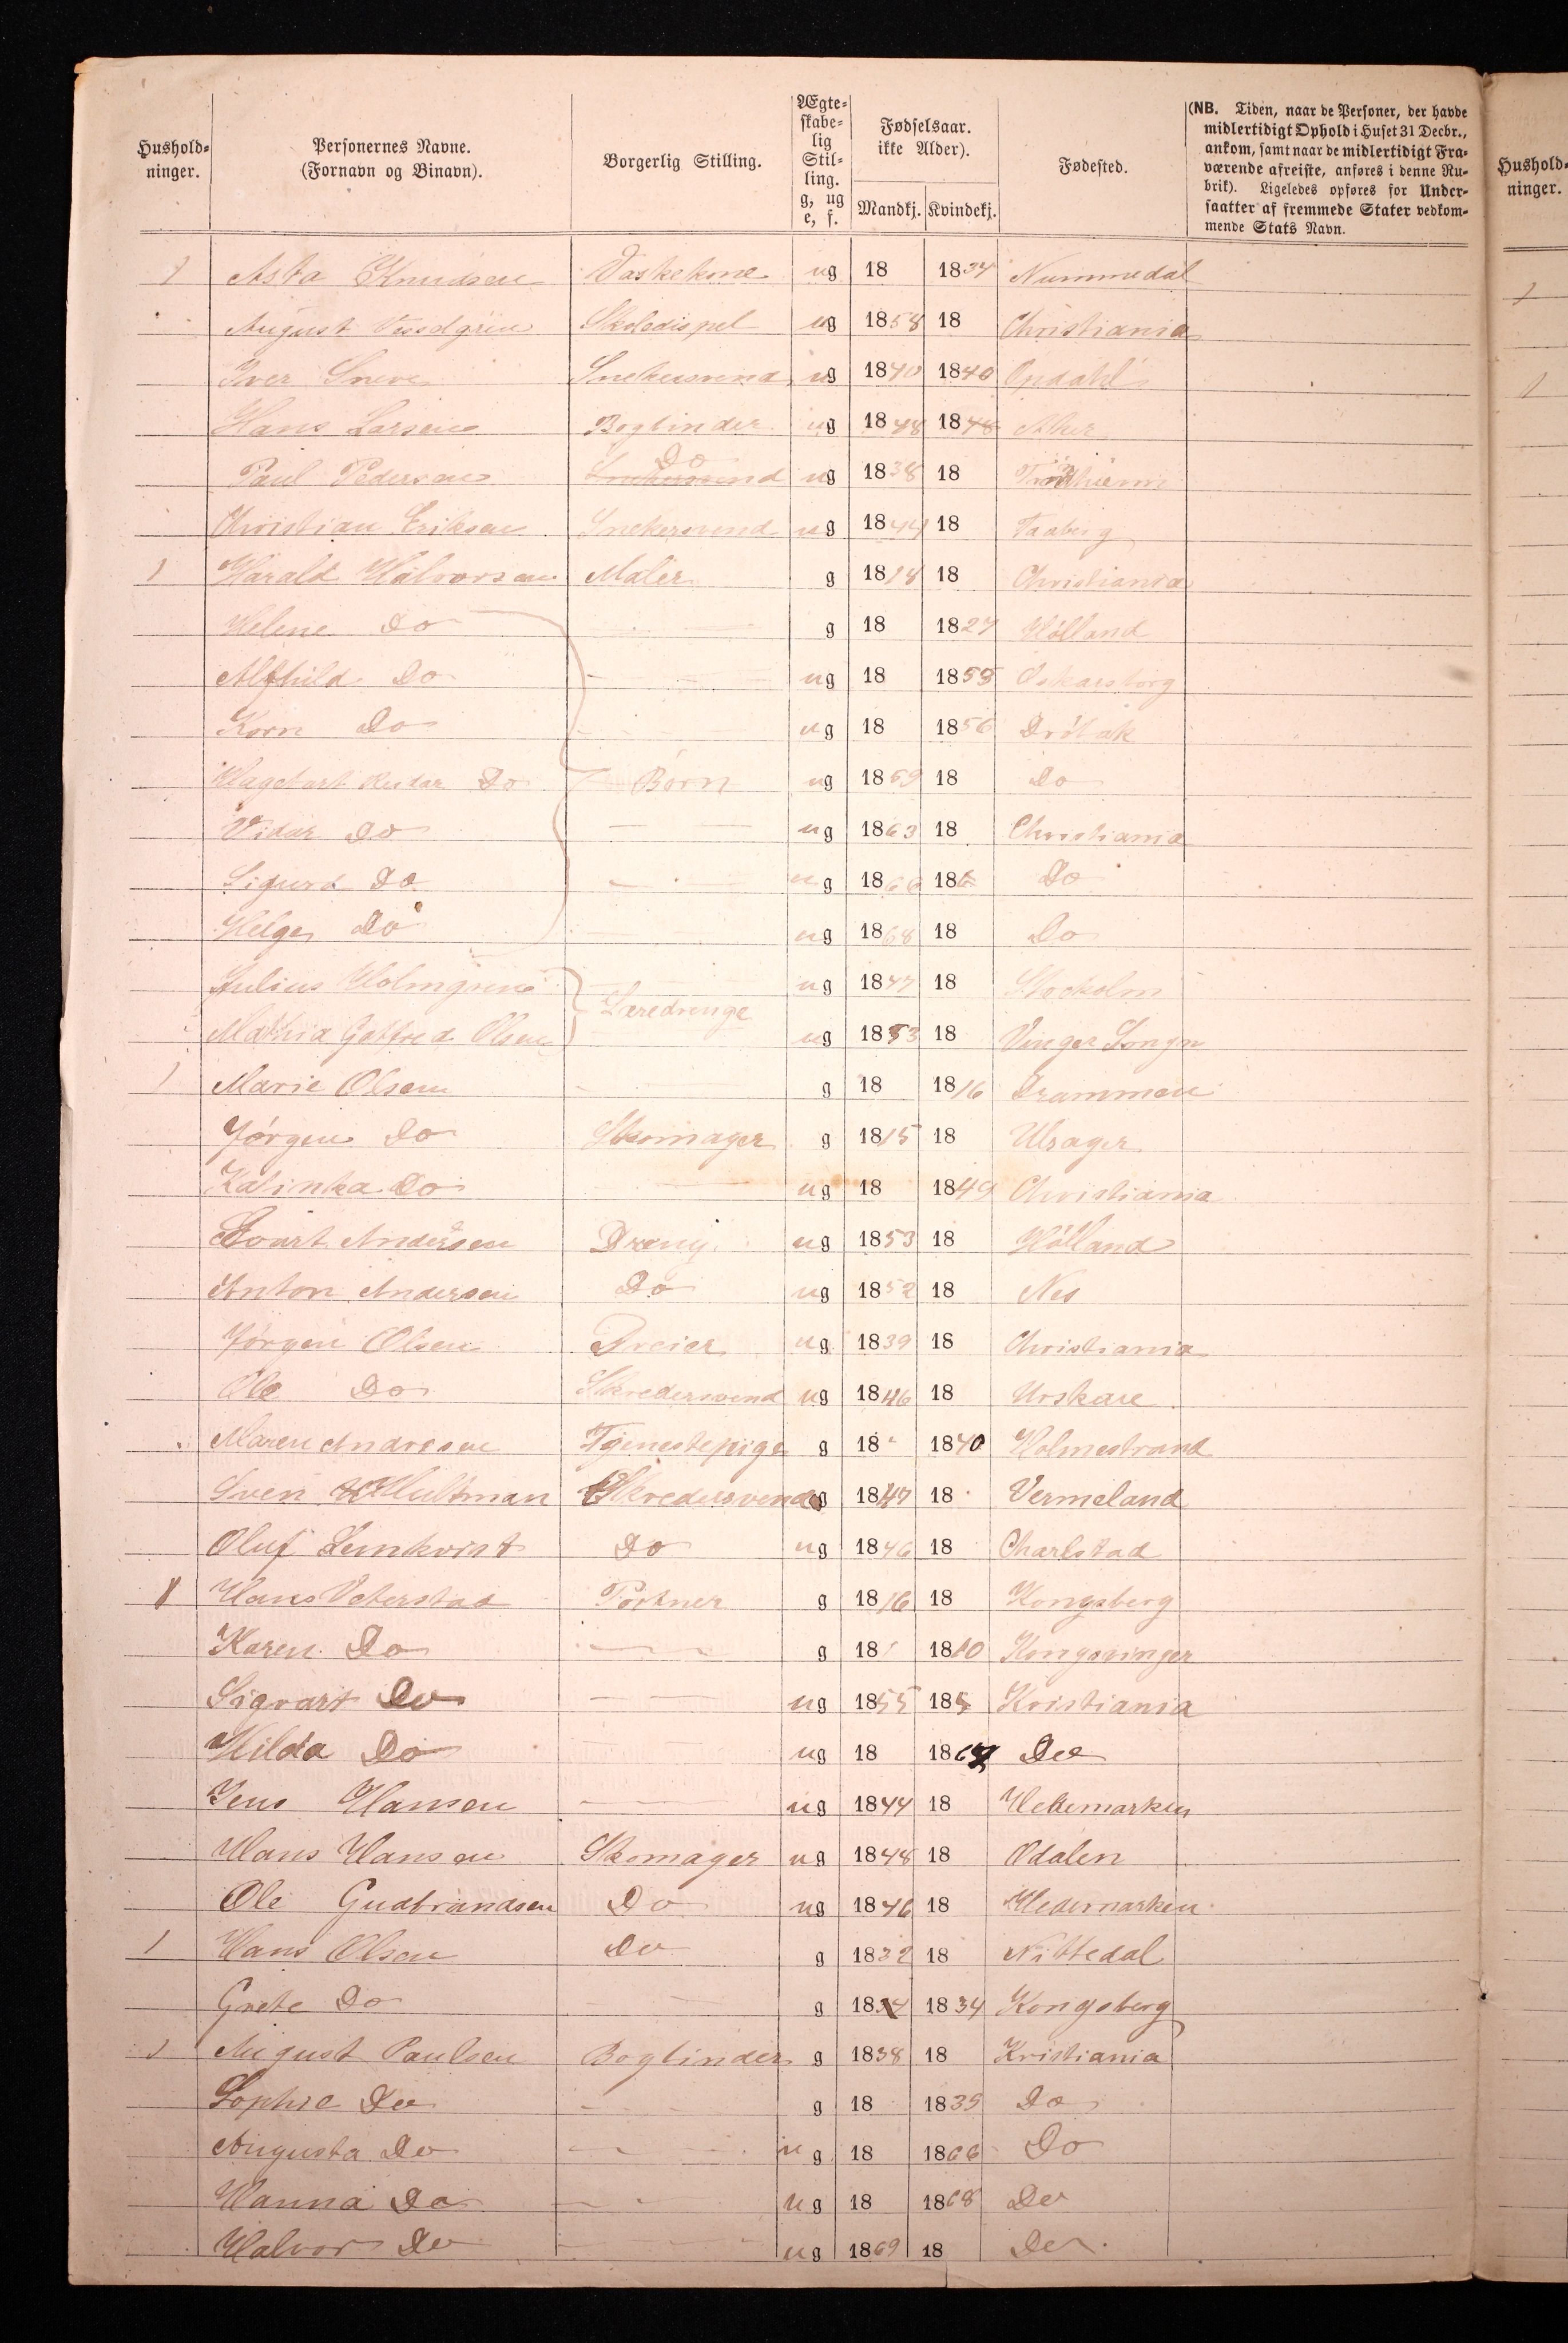 Hushold-
ninger.
Personernes Navne.
(Fornavn og Binavn).
Borgerlig Stilling.
Ægte-
skabe-
lig
Stil-
ling.
g, ug
e, f.
Fødselsaar.
ikke Alder).
Mandkj. Kvindekj.
Fødested.
(NB. Tiden, naar de Personer, der havde
midlertidigt Ophold i Huset 31 Decbr.,
ankom, samt naar de midlertidigt Fra-
værende afreiste, anføres i denne Ru-
brik). Ligeledes opføres for Under-
saatter af fremmede Stater vedkom-
mende Stats Navn.
Hushold-
ninger.
1 Asta Knudsen Vaskekone ug 18 1834 Nummedal
August Skoledispel ug 1858 18 Christiania
Iver Snekersvend ug 1840 1840 Opdahl
Hans Larsen Bogbinder ug 1848 1848 Aker
Paul Pedersen Snekersvend Do ug 1838 18
Christian Eriksen Snekersvend ug 1844 18 Faaberg
1 Harald Halvorsen Maler g 1818 18 Christiania
Helene Do g 18 1827 Hölland
Alfhild Do ug 18 1855 Oskarsborg
Korn Do ug 18 1856 Dröbak
Do Börn ug 1859 18 Do
Vidar Do ug 1863 18 Christiania
Sigurd Do ug 1866 186 Do
Helge Do ug 1868 18 Do
Julius Holmgren Læredrenge ug 1847 18 Stockolm
Mathia Gotfred Olsen ug 1853 18 Vinger Songn
1 Marie Olsen g 18 1816 Drammen
Jørgen Do Skomager g 1815 18 Ulsager
Katinka Do ug 18 1849 Christiania
Evart Andersen Dreng ug 1853 18 Hölland
Anton Andersen Do ug 1852 18 Nes
Jørgen Olsen Dreier ug 1839 18 Christiania
Ole Do Skredersvend ug 1846 18 Urskaue
Maren Andresen Tjenestepige g 18 1840 Holmestrand
Sven Hultman Skredersvend g 1847 18 Vermeland
Oluf Lemkvist Do ug 1846 18 Charlstad
1 Hans Veterstad Portner g 1816 18 Kongsberg
Karen Do g 18 1810 Kongsvinger
Sigvart Do ug 1855 185 Kristiania
Hilda Do ug 18 186 Do
Jens Hansen ug 1844 18 Hedemarken
Hans Hansen Skomager ug 1848 18 Odalen
Ole Gudbrandsen Do ug 1846 18 Hedemarken
1 Hans Olsen Do g 1832 18 Nittedal
Grete Do g 1834 1834 Kongsberg
1 August Paulsen Bogbinder g 1838 18 Kristiania
Sophie Do g 18 1839 Do
Augusta Do ug 18 1866 Do
Hanna Do ug 18 1868 Do
Halvor Do ug 1869 18 Do